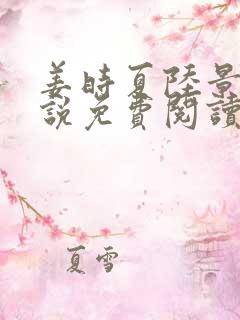 姜時夏陸景
說免費閱讀
夏雪